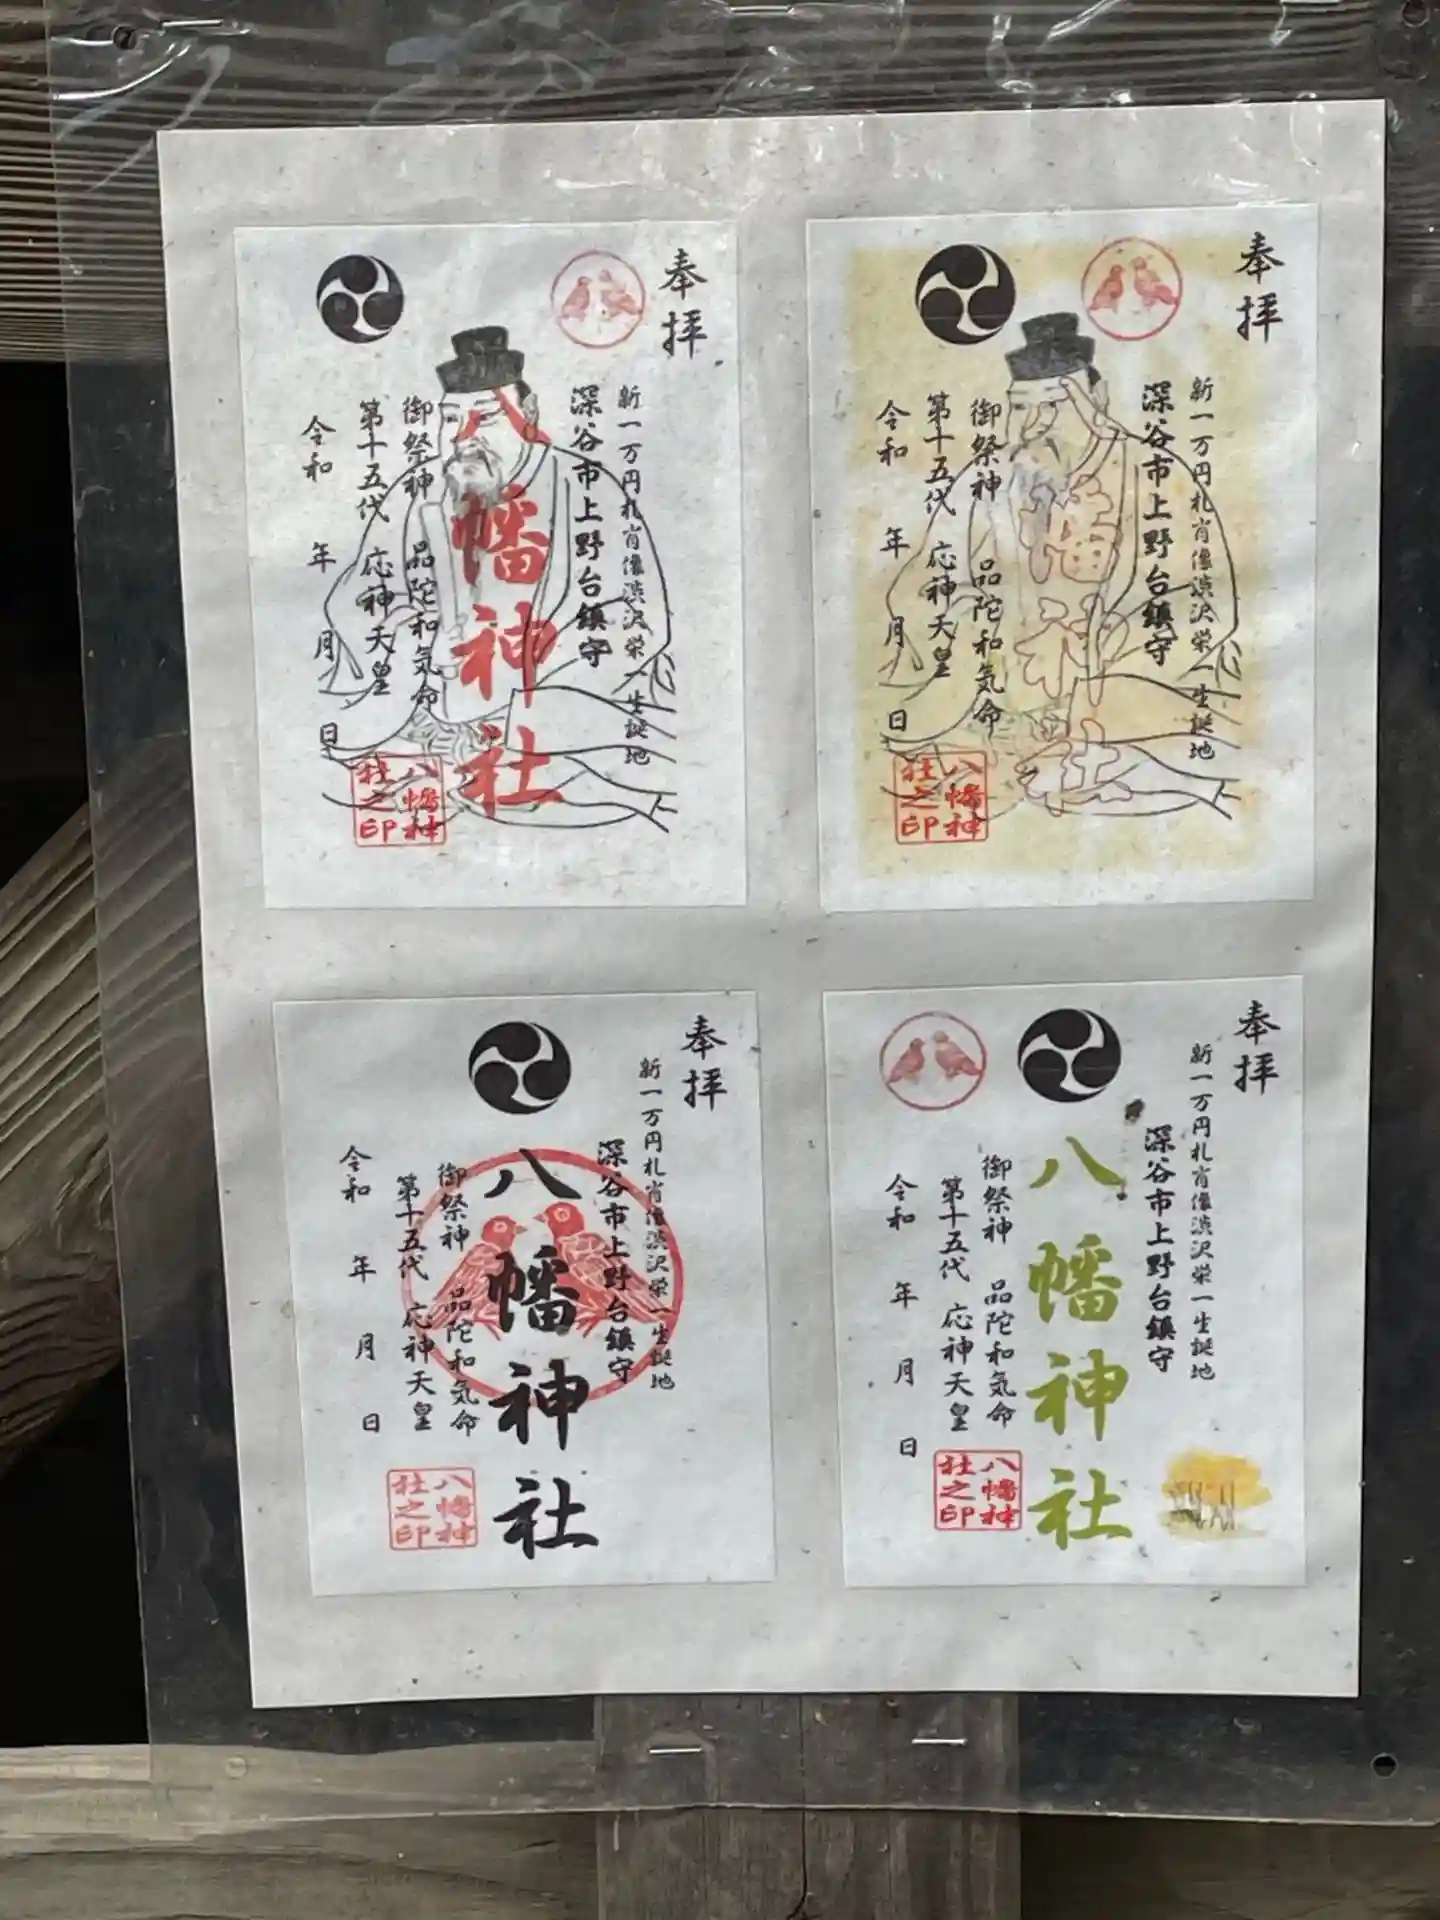 奉拝
新一万円札肖像渋沢栄一生誕地
深谷市上野台鎮守
八幡神社
御祭神 品陀和気命
第十五代 応神天皇
令和 年 月 日
八幡神
社之印
奉拝
新一万円札肖像渋沢栄一生誕地
深谷市上野台鎮守
八幡神社
御祭神 品陀和気命
第十五代 応神天皇
令和 年 月 日
八幡神
社之印
奉拝
新一万円札肖像渋沢栄一生誕地
深谷市上野台鎮守
八幡神社
御祭神 品陀和気命
第十五代 応神天皇
令和 年 月 日
八幡神
社之印
奉拝
新一万円札肖像渋沢栄一生誕地
深谷市上野台鎮守
八幡神社
御祭神 品陀和気命
第十五代 応神天皇
令和 年 月 日
八幡神
社之印